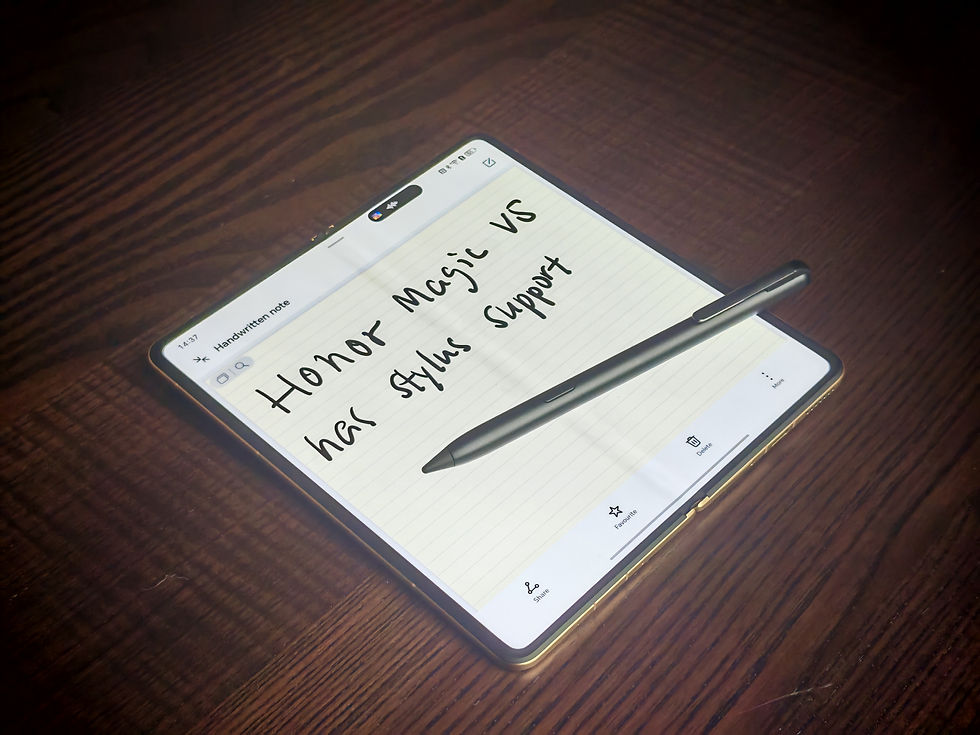 14:37
Handwritten note
Honor Magic VS
has stylus support
Share
Favourite
Delete
More